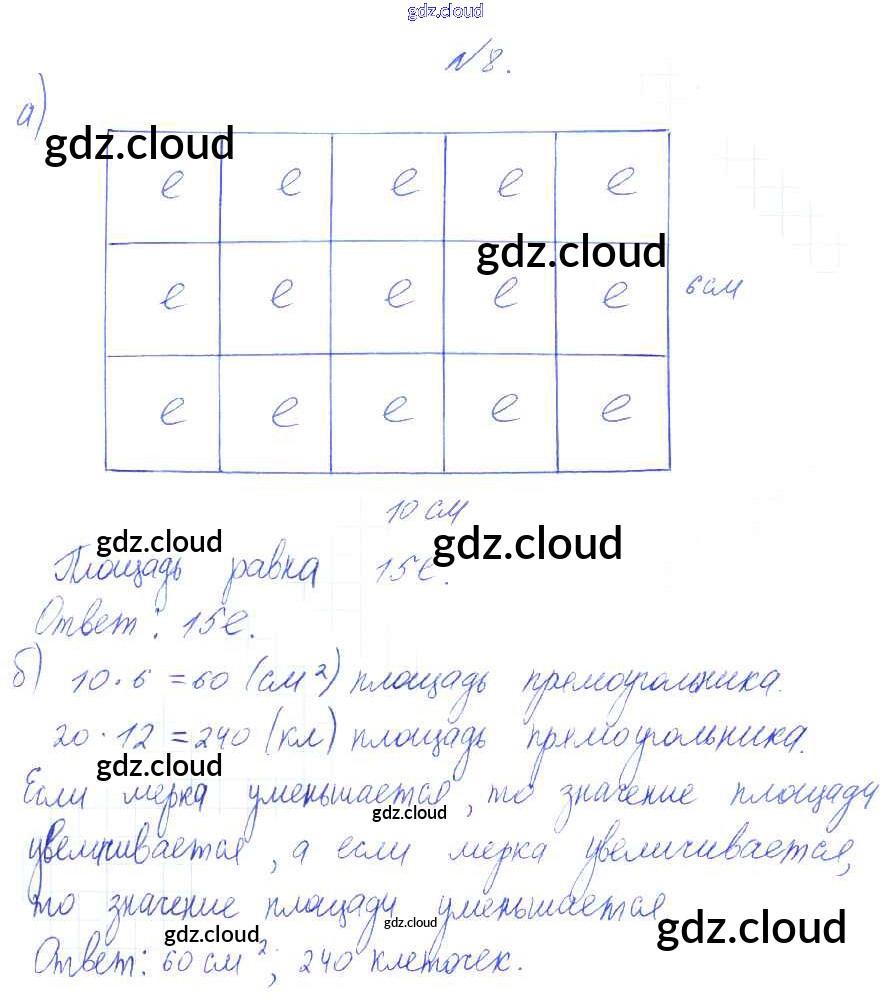 gdz.cloud
№8.
а)
gdz.cloud
е е е е е
gdz.cloud
е е е е е 6 см
е е е е е
10 см
gdz.cloud gdz.cloud
Площадь равна 15е.
Ответ: 15е.
б) 10·6 = 60 (см²) площадь прямоугольника.
20·12 = 240 (кл) площадь прямоугольника.
gdz.cloud
Если мерка уменьшается, то значение площади
gdz.cloud
увеличивается, а если мерка увеличивается,
то значение площади уменьшается
gdz.cloud gdz.cloud gdz.cloud
Ответ: 60 см²; 240 клеточек.